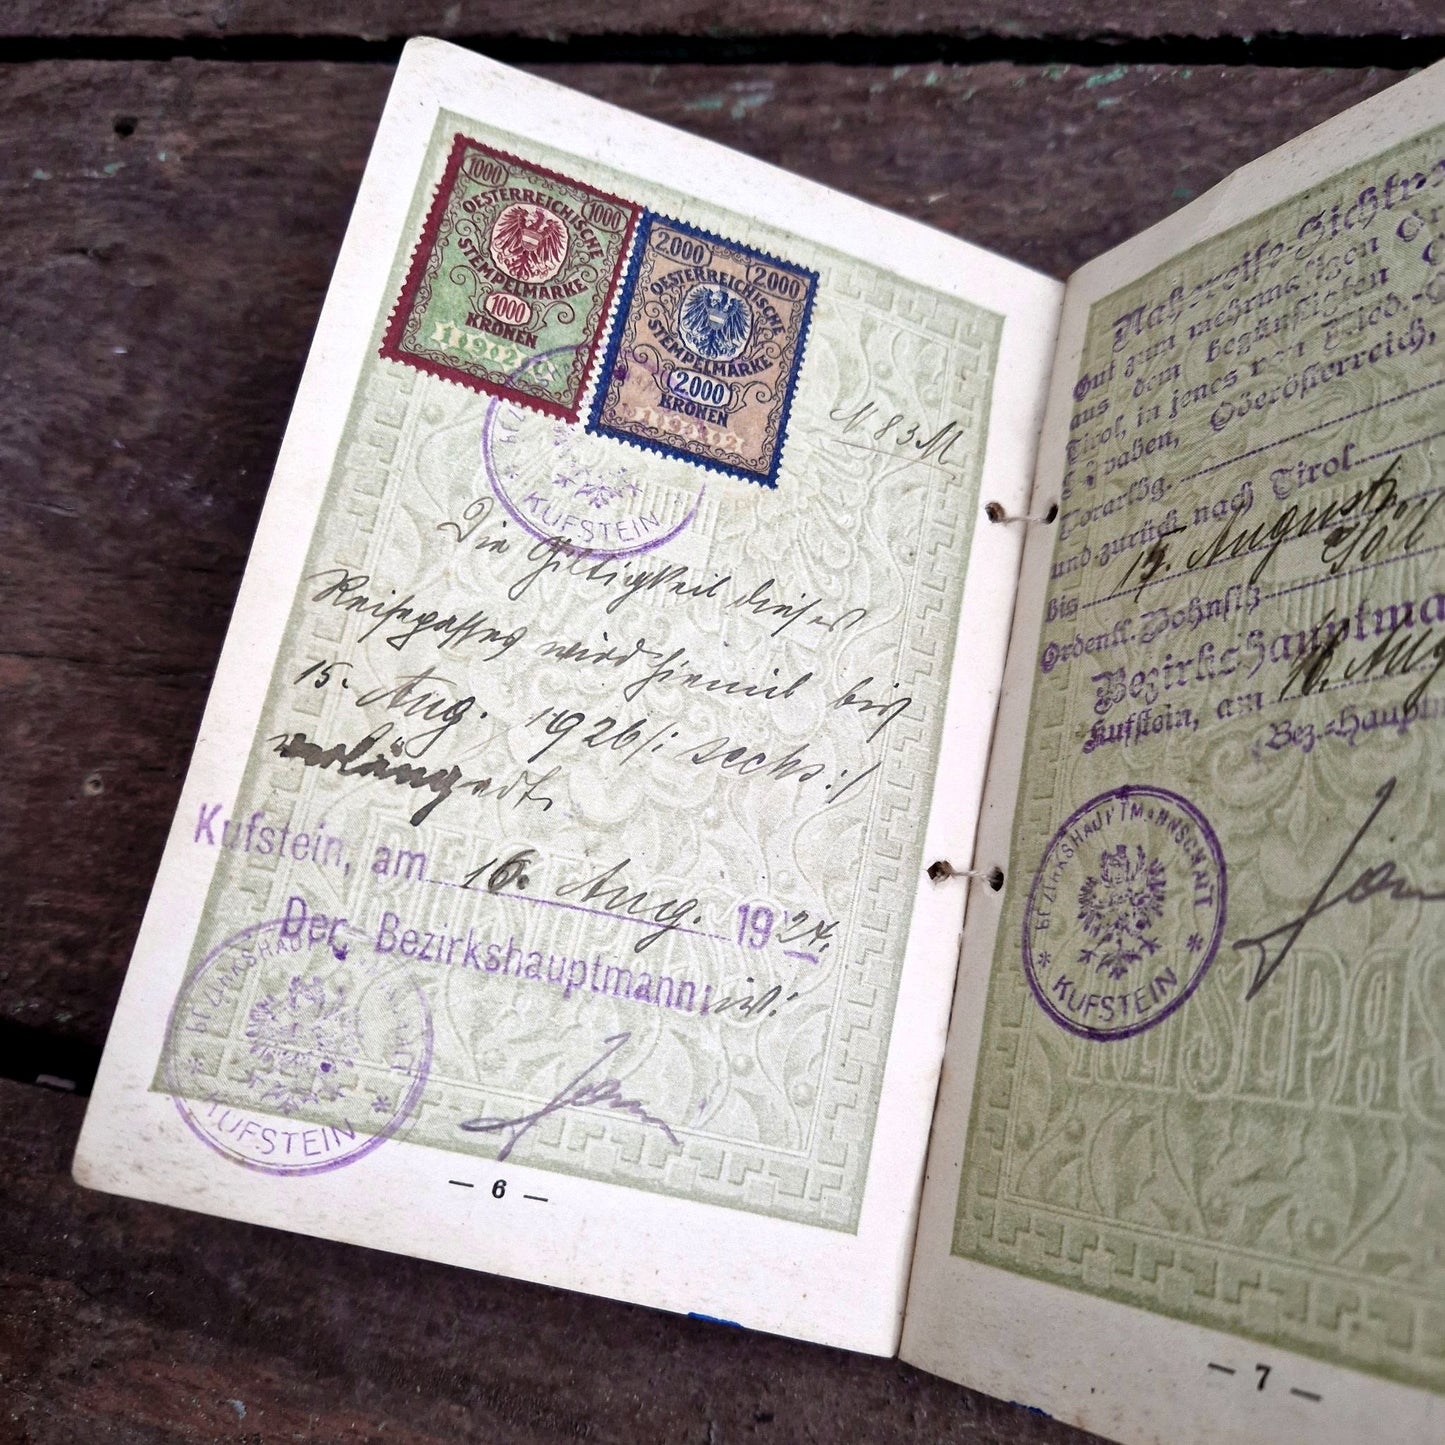 1000 1000
OESTERREICHISCHE
STEMPELMARKE
1000
KRONEN
1922
2.000 2.000
OESTERREICHISCHE
STEMPELMARKE
2.000
KRONEN
KUFSTEIN
Die Giltigkeit dieses
Reisepasses wird hiemit bis
15. Aug. 1926 /: sechs :/
verlängert.
Kufstein, am 16. Aug. 1924.
Der Bezirkshauptmann:
BEZIRKSHAUPTMANNSCHAFT
* KUFSTEIN *
— 6 —
Gut zum mehrmaligen
aus dem begünstigten
Tirol, in jenes von
Oberösterreich,
Vorarlbg.
und zurück nach Tirol
bis 15. August
Ordentl. Wohnsitz Söll
Kufstein, am 16. Aug
BEZIRKSHAUPTMANNSCHAFT
* KUFSTEIN *
REISEPASS
— 7 —